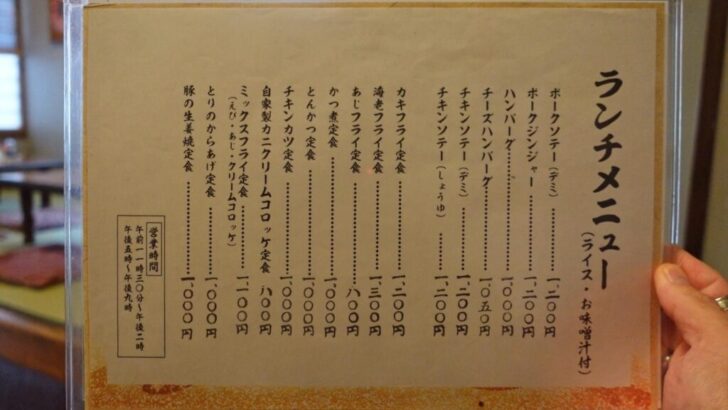 ランチメニュー(ライス・お味噌汁付)
ポークソテー(デミ)………一、二〇〇円
ポークジンジャー………一、二〇〇円
ハンバーグ………一、〇〇〇円
チーズハンバーグ………一、〇五〇円
チキンソテー(デミ)………一、二〇〇円
チキンソテー(しょうゆ)………一、二〇〇円
カキフライ定食………一、二〇〇円
海老フライ定食………一、三〇〇円
あじフライ定食………八〇〇円
かつ煮定食………一、〇〇〇円
とんかつ定食………一、〇〇〇円
チキンカツ定食………一、〇〇〇円
自家製カニクリームコロッケ定食 八〇〇円
ミックスフライ定食………一、一〇〇円
(えび・あじ・クリームコロッケ)
とりのからあげ定食………一、〇〇〇円
豚の生姜焼定食………一、〇〇〇円
営業時間
午前一一時三〇分〜午後二時
午後五時〜午後九時